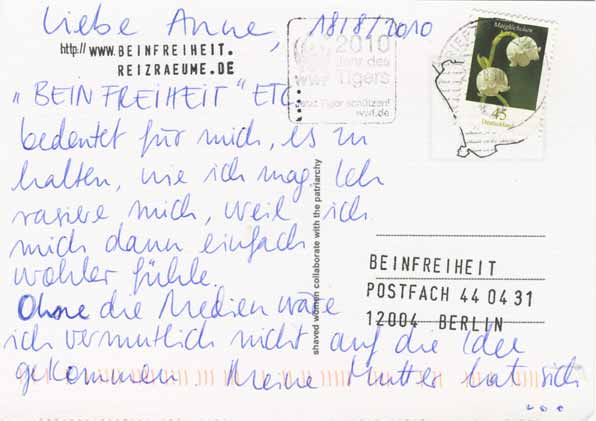 Liebe Anne, 18/8/2010
http://www.BEINFREIHEIT.
REIZRAEUME.DE
2010
Jahr des
Tigers
WWF
Tiger schützen!
wwf.de
Maiglöckchen
45
Deutschland
BRIEF
„BEINFREIHEIT" ETC.
bedeutet für mich, es zu
halten, wie ich mag. Ich
rasiere mich, weil ich
mich dann einfach
wohler fühle.
Ohne die Medien wäre
ich vermutlich nicht auf die Idee
gekommen. Meine Mutter hat sich
...
shaved women collaborate with the patriarchy
BEINFREIHEIT
POSTFACH 44 04 31
12004 BERLIN